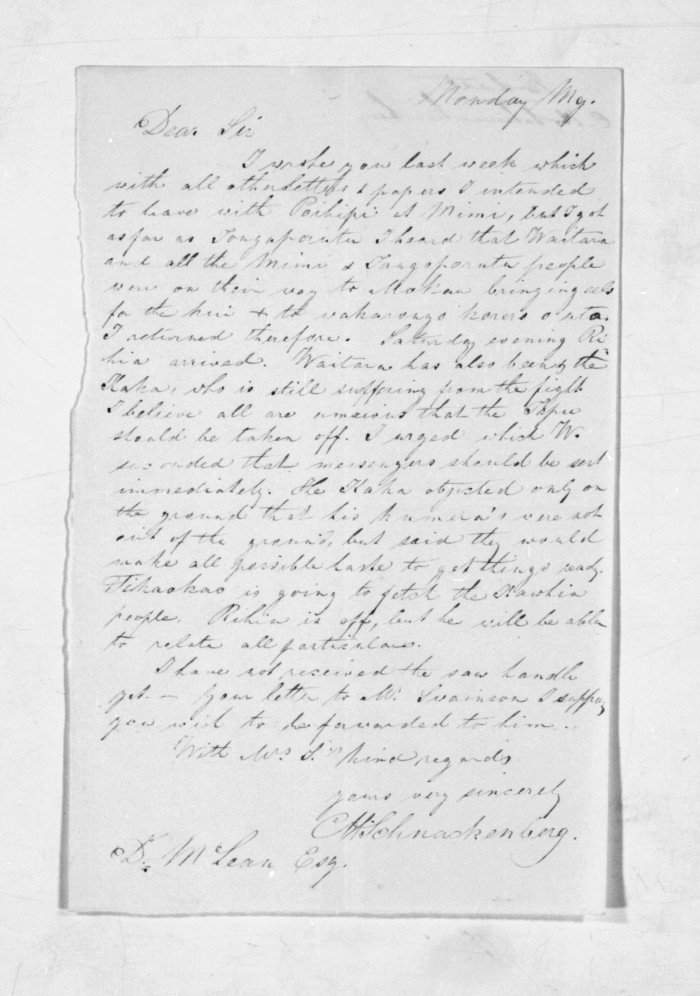 Monday Mg.
Dear Sir
I wrote you last week which
with all other letters & papers I intended
to leave with Poihipi at Mimi, but I got
as far as Tongaporutu I heard that Waitara
and all the Mimi & Tongaporutu people
were on their way to Mokau bringing eels
for the hui & te wakarongo korero o uta.
I returned therefore. Saturday evening Ri
hia arrived. Waitara has also been the
Kaka, who is still suffering from the fight
I believe all are anxious that the Tapu
should be taken off. I urged which W.
seconded that messengers should be sent
immediately. He Kaka objected only on
the ground that his kumera's were not
out of the ground, but said they would
make all possible haste to get things ready.
Tikaokao is going to fetch the Kawhia
people. Rihia is off, but he will be able
to relate all particulars.
I have not received the saw handle
yet — Your letter to Mr. Swainson I suppose
you wish to be forwarded to him..
With Mrs S.'s kind regards
yours very sincerely
CH Schnackenberg.
D. McLean Esq.